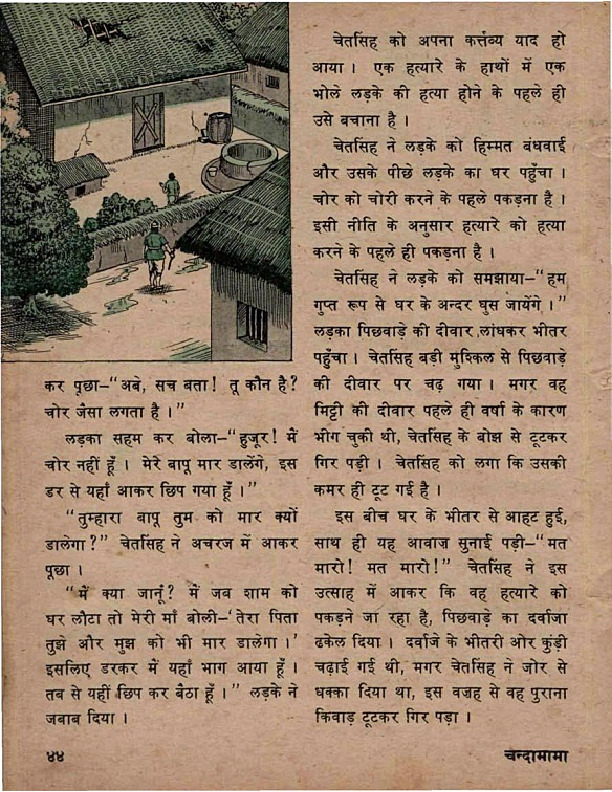 कर पूछा–“अबे, सच बता! तू कौन है?
चोर जैसा लगता है।”
लड़का सहम कर बोला–“हुजूर! मैं
चोर नहीं हूँ। मेरे बापू मार डालेंगे, इस
डर से यहाँ आकर छिप गया हूँ।”
“तुम्हारा बापू तुम को मार क्यों
डालेगा?” चेतसिंह ने अचरज में आकर
पूछा।
“में क्या जानूँ? में जब शाम को
घर लौटा तो मेरी माँ बोली–‘तेरा पिता
तुझे और मुझ को भी मार डालेगा।’
इसलिए डरकर में यहाँ भाग आया हूँ।
तब से यहीं छिप कर बैठा हूँ।” लड़के ने
जवाब दिया।
चेतसिंह को अपना कर्त्तव्य याद हो
आया। एक हत्यारे के हाथों में एक
भोले लड़के की हत्या होने के पहले ही
उसे बचाना है।
चेतसिंह ने लड़के को हिम्मत बंधवाई
और उसके पीछे लड़के का घर पहुँचा।
चोर को चोरी करने के पहले पकड़ना है।
इसी नीति के अनुसार हत्यारे को हत्या
करने के पहले ही पकड़ना है।
चेतसिंह ने लड़के को समझाया–“हम
गुप्त रूप से घर के अन्दर घुस जायेंगे।”
लड़का पिछवाड़े की दीवार लांघकर भीतर
पहुँचा। चेतसिंह बड़ी मुश्किल से पिछवाड़े
की दीवार पर चढ़ गया। मगर वह
मिट्टी की दीवार पहले ही वर्षा के कारण
भीग चुकी थी, चेतसिंह के बोझ से टूटकर
गिर पड़ी। चेतसिंह को लगा कि उसकी
कमर ही टूट गई है।
इस बीच घर के भीतर से आहट हुई,
साथ ही यह आवाज सुनाई पड़ी–“मत
मारो! मत मारो!” चेतसिंह ने इस
उत्साह में आकर कि वह हत्यारे को
पकड़ने जा रहा है, पिछवाड़े का दर्वाजा
ढकेल दिया। दर्वाजे के भीतरी ओर कुंड़ी
चढ़ाई गई थी, मगर चेतसिंह ने जोर से
धक्का दिया था, इस वजह से वह पुराना
किवाड़ टूटकर गिर पड़ा।
४४
चन्दामामा